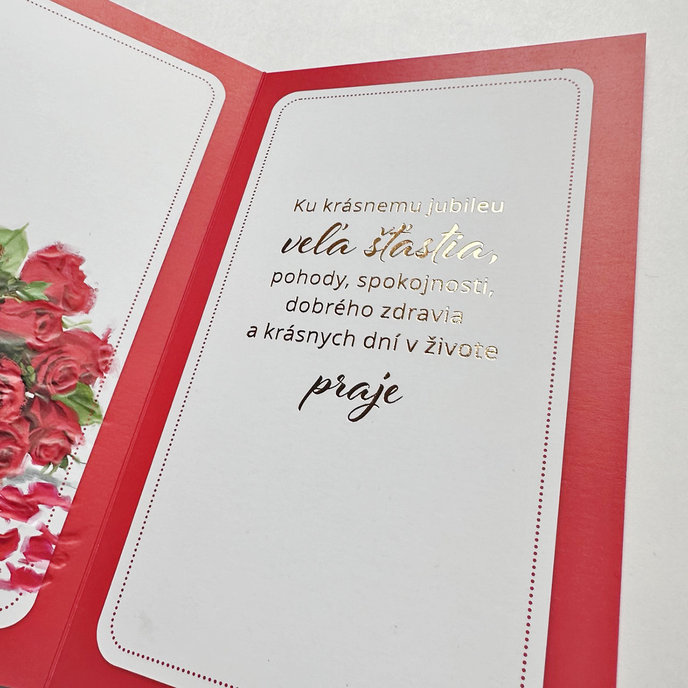 Ku krásnemu jubileu
veľa šťastia,
pohody, spokojnosti,
dobrého zdravia
a krásnych dní v živote
praje